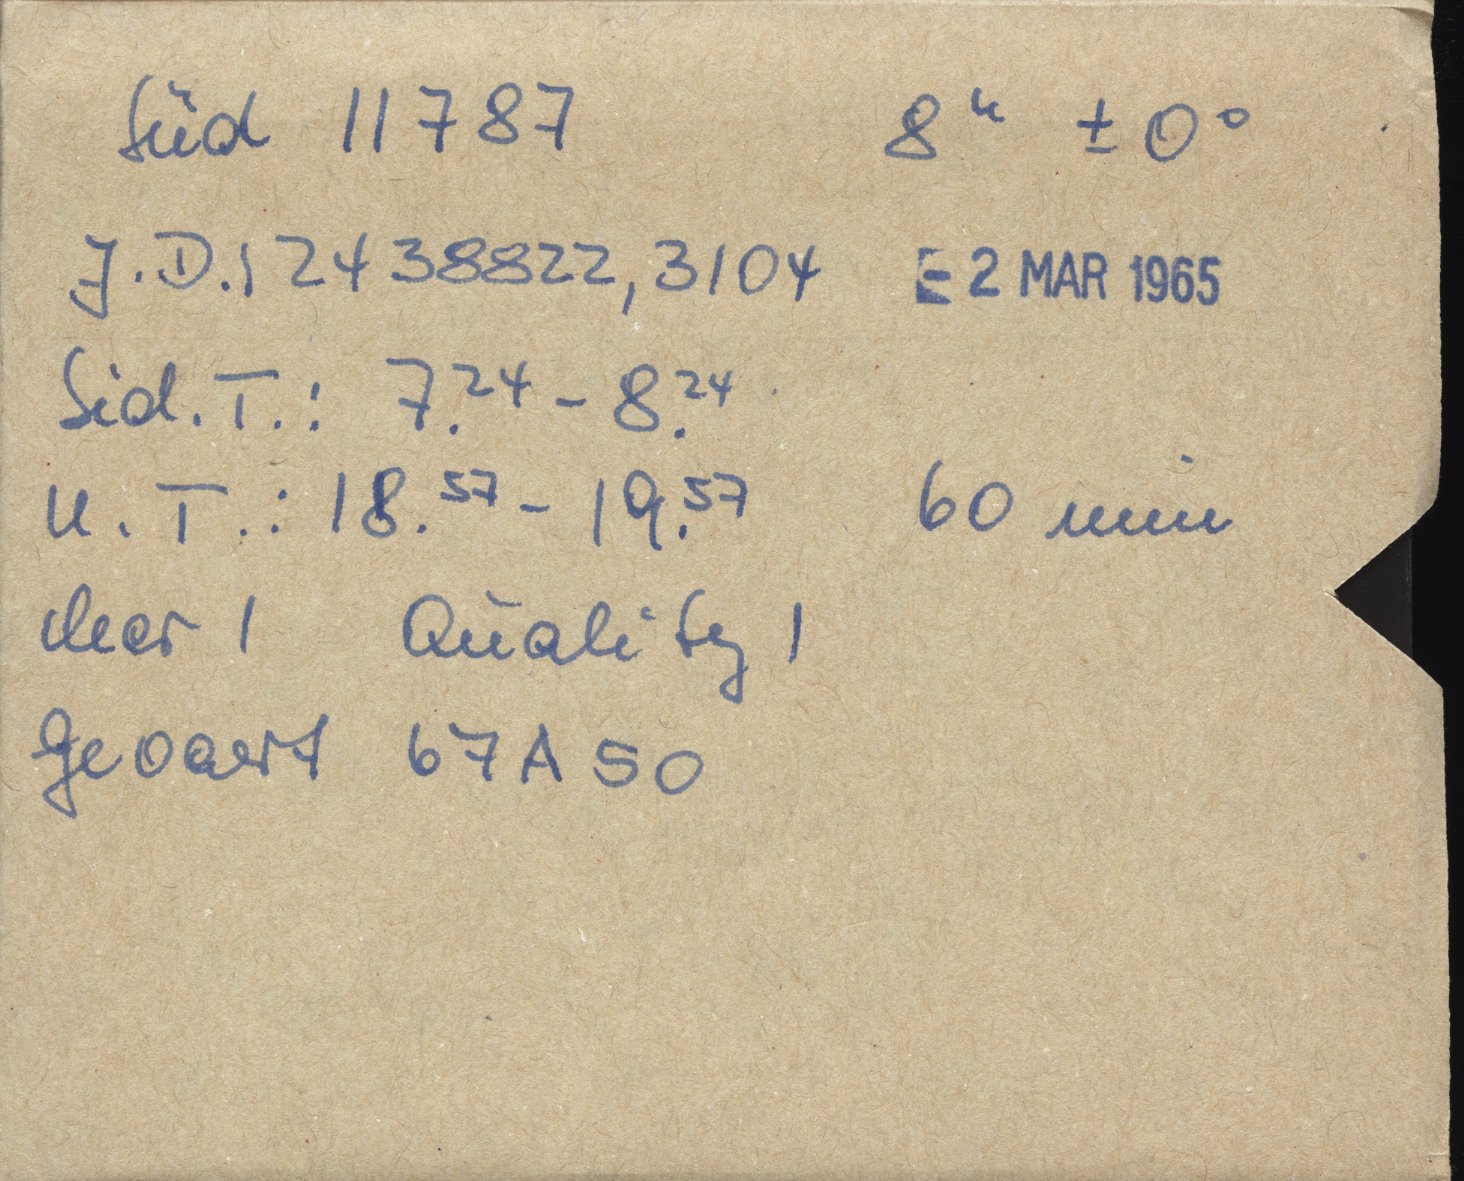 Süd 11787 8ʰ ±0°
J.D.: 2438822,3104 E 2 MAR 1965
Sid.T.: 7.²⁴ - 8.²⁴
U.T.: 18.⁵⁷ - 19.⁵⁷ 60 min
clear 1 Quality 1
Gevaert 67A50